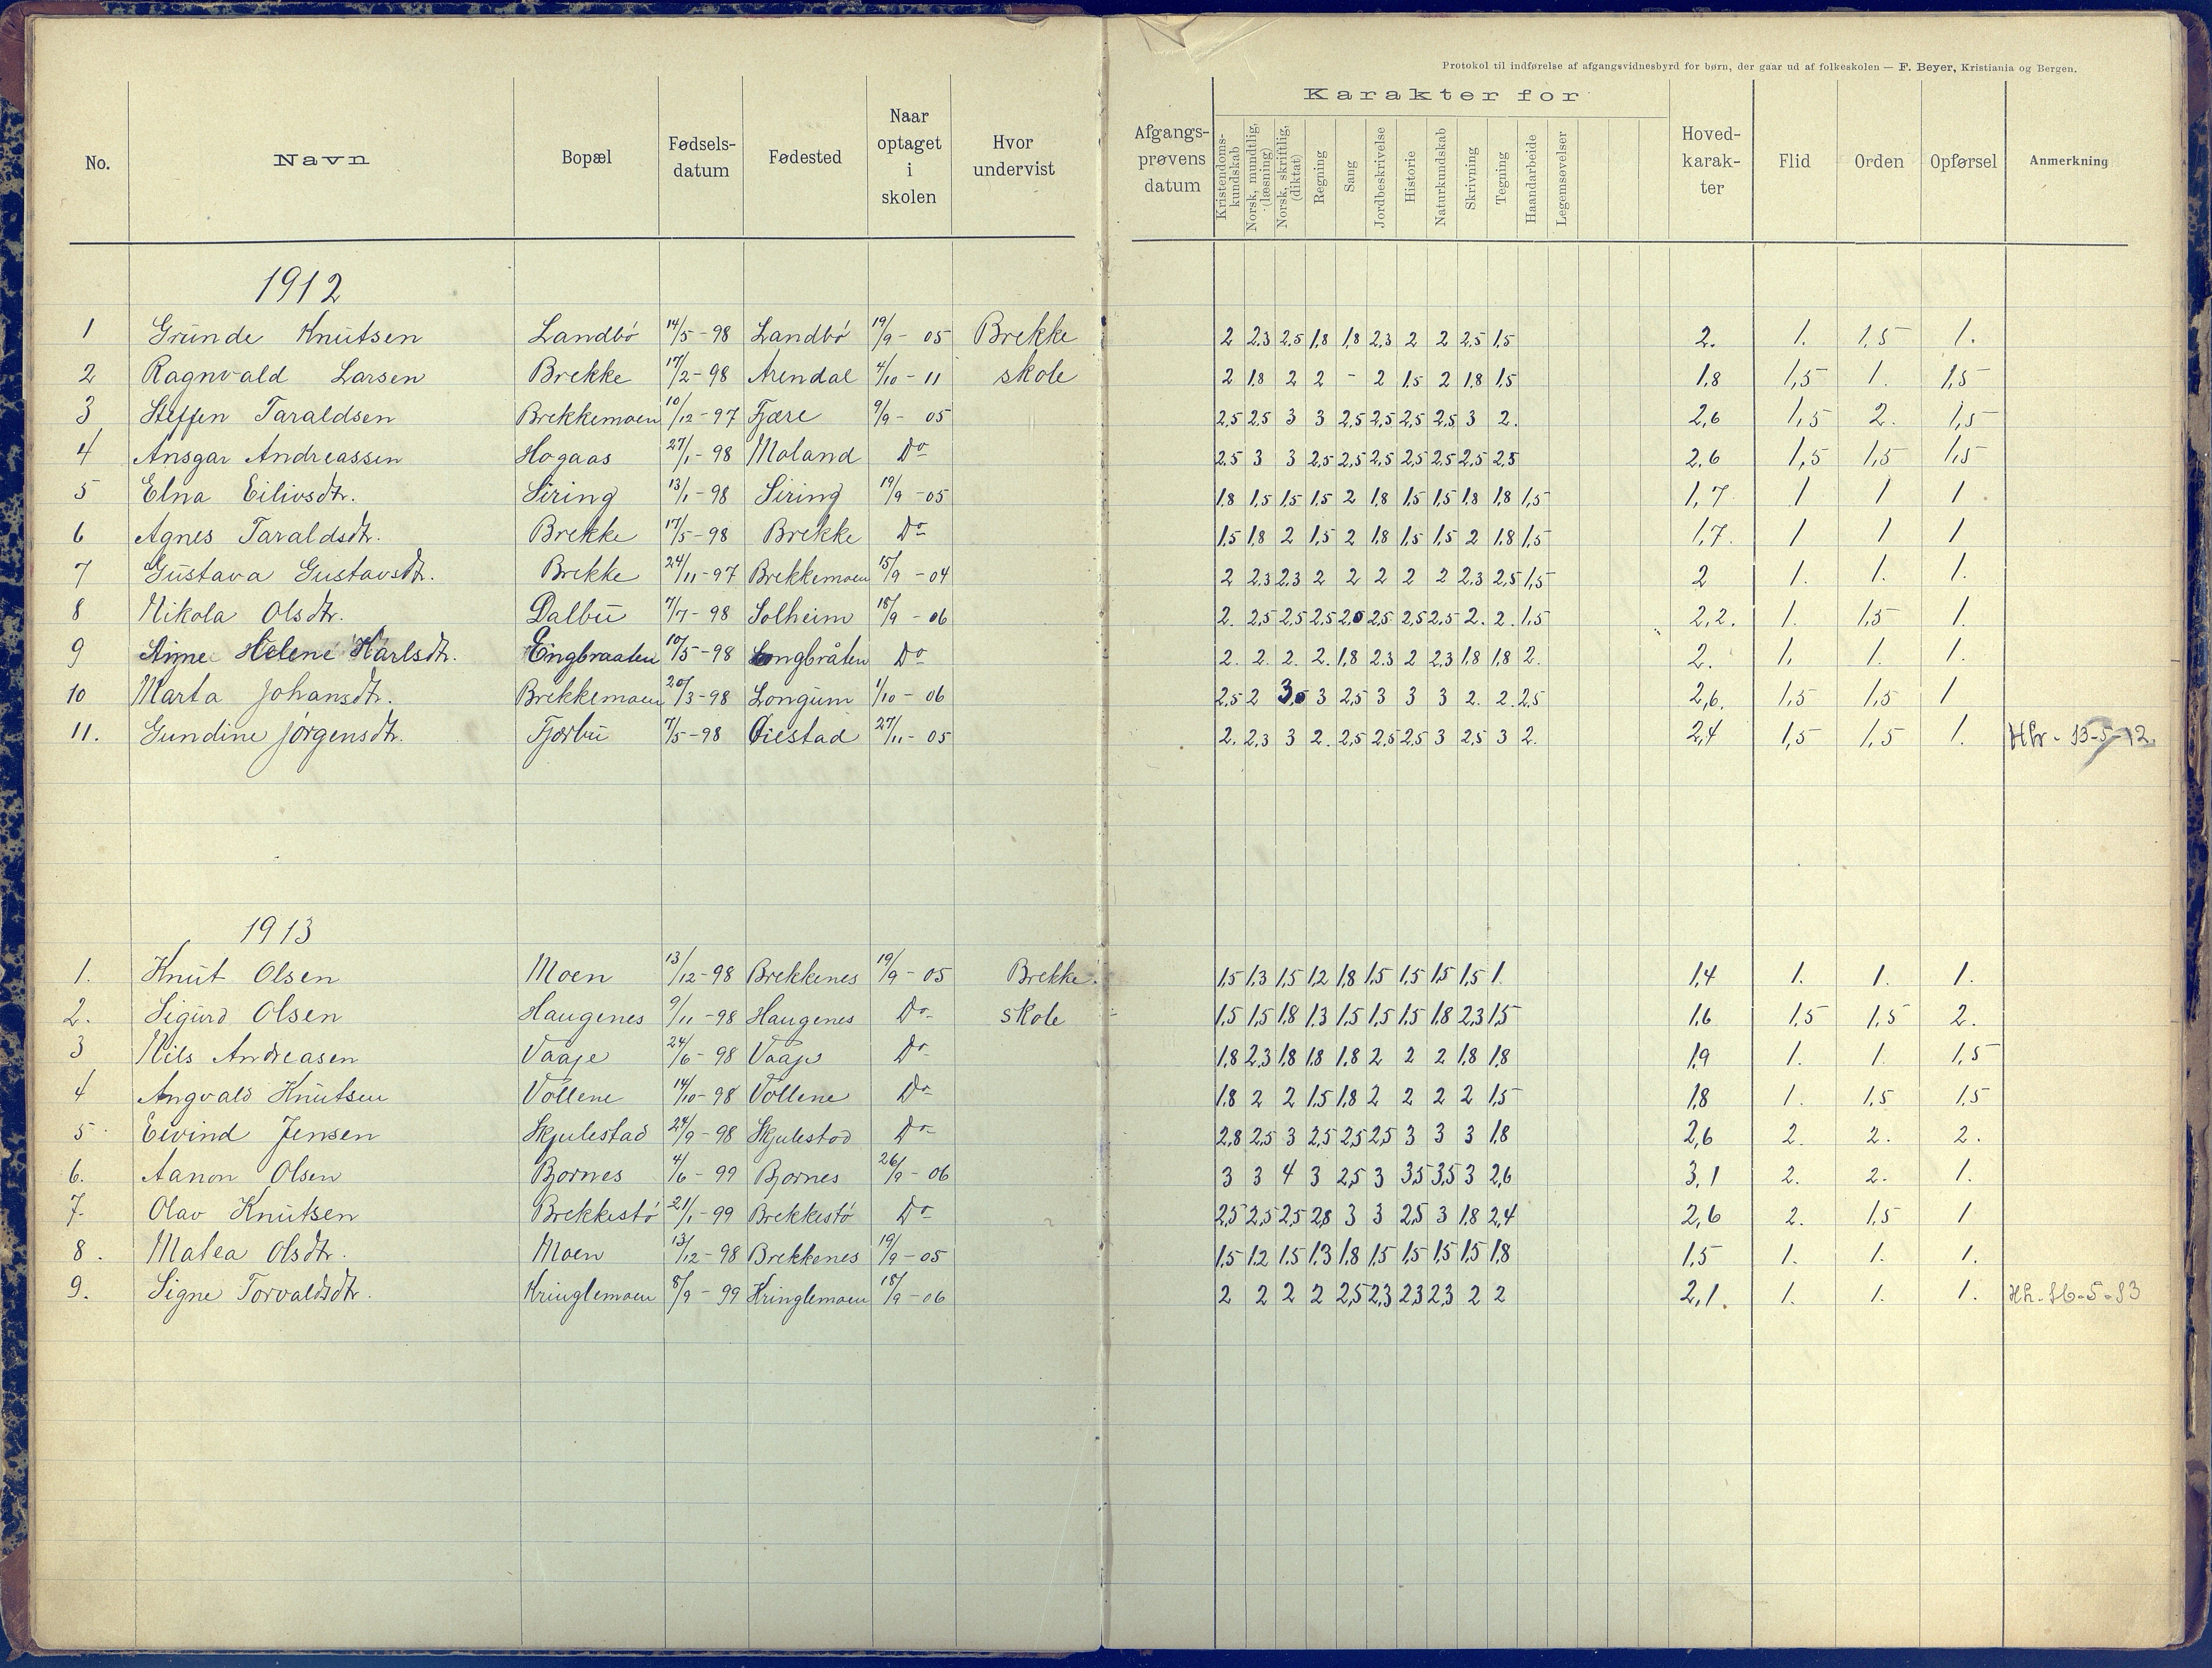 Protokol til indførelse af afgangsvidnesbyrd for børn, der gaar ud af folkeskolen — F. Beyer, Kristiania og Bergen.
No. Navn Bopæl Fødselsdatum Fødested Naar optaget i skolen Hvor undervist Afgangsprøvens datum Karakter for Kristendomskundskab Norsk, mundtlig, (læsning) Norsk, skriftlig, (diktat) Regning Sang Jordbeskrivelse Historie Naturkundskab Skrivning Tegning Haandarbeide Legemsøvelser Hovedkarakter Flid Orden Opførsel Anmerkning
1912
1 Gunde Knutsen Landbö 14/5-98 Landbö 19/9-05 Brekke 2 2,3 2,5 1,8 1,8 2,3 2 2 2,5 1,5 2. 1. 1,5 1.
2 Ragnvald Larsen Brekke 17/2-98 Arendal 4/10-11 skole 2 1,8 2 2 - 2 1,5 2 1,8 1,5 1,8 1,5 1. 1,5
3 Steffen Taraldsen Brekkemoen 10/12-97 Fjære 9/9-05 2,5 2,5 3 3 2,5 2,5 2,5 2,5 3 2. 2,6 1,5 2. 1,5
4 Ansgar Andreassen Hogaas 27/1-98 Moland Do 2,5 3 3 2,5 2,5 2,5 2,5 2,5 2,5 2,5 2,6 1,5 1,5 1,5
5 Elna Eilivsdtr. Siring 13/1-98 Siring 19/9-05 1,8 1,5 1,5 1,5 2 1,8 1,5 1,5 1,8 1,8 1,5 1,7 1 1 1
6 Agnes Taraldsdtr. Brekke 17/5-98 Brekke Do 1,5 1,8 2 1,5 2 1,8 1,5 1,5 2 1,8 1,5 1,7. 1 1 1
7 Gustava Gustavsdtr. Brekke 24/11-97 Brekkemoen 15/9-04 2 2,3 2,3 2 2 2 2 2 2,3 2,5 1,5 2 1. 1. 1.
8 Nikola Olsdtr. Dalbu 7/7-98 Solheim 18/9-06 2. 2,5 2,5 2,5 2,0 2,5 2,5 2,5 2. 2. 1,5 2,2. 1. 1,5 1.
9 Anne Helene Karlsdtr. Engbraaten 10/5-98 Longbråten Do 2. 2. 2. 2. 1,8 2.3 2 2,3 1,8 1,8 2. 2. 1. 1. 1.
10 Marta Johansdtr. Brekkemoen 20/3-98 Longum 1/10-06 2,5 2 3,0 3 2,5 3 3 3 2. 2. 2,5 2,6. 1,5 1,5 1
11. Gundine Jörgensdtr. Fjørbu 7/5-98 Øiestad 27/11-05 2. 2,3 3 2. 2,5 2,5 2,5 3 2,5 3 2. 2,4 1,5 1,5 1. 13-5-12
1913
1. Knut Olsen Moen 13/12-98 Brekkenes 19/9-05 Brekke 1,5 1,3 1,5 1,2 1,8 1,5 1,5 1,5 1,5 1. 1,4 1. 1. 1.
2. Sigurd Olsen Haugenes 9/11-98 Haugenes Do skole 1,5 1,5 1,8 1,3 1,5 1,5 1,5 1,8 2,3 1,5 1,6 1,5 1,5 2.
3 Nils Andreasen Vaaje 24/6-98 Vaaje Do 1,8 2,3 1,8 1,8 1,8 2 2 2 1,8 1,8 1,9 1. 1. 1,5
4 Angvald Knutsen Vollene 14/10-98 Vollene Do 1,8 2 2 1,5 1,8 2 2 2 2 1,5 1,8 1. 1,5 1,5
5 Eivind Jensen Skjulestad 24/9-98 Skjulestad Do 2,8 2,5 3 2,5 2,5 2,5 3 3 3 1,8 2,6 2. 2. 2.
6. Aanon Olsen Bjornes 4/6-99 Bjornes 26/9-06 3 3 4 3 2,5 3 3,5 3,5 3 2,6 3,1 2. 2. 1.
7. Olav Knutsen Brekkestö 21/1-99 Brekkestö Do 2,5 2,5 2,5 2,8 3 3 2,5 3 1,8 2,4 2,6 2. 1,5 1
8. Matea Olsdtr. Moen 13/12-98 Brekkenes 19/9-05 1,5 1,2 1,5 1,3 1,8 1,5 1,5 1,5 1,5 1,8 1,5 1. 1. 1.
9. Signe Torvaldsdtr. Kringlemoen 8/9-99 Kringlemoen 18/9-06 2 2 2 2 2,5 2,3 2,3 2,3 2 2 2,1. 1. 1. 1. 16-5-13